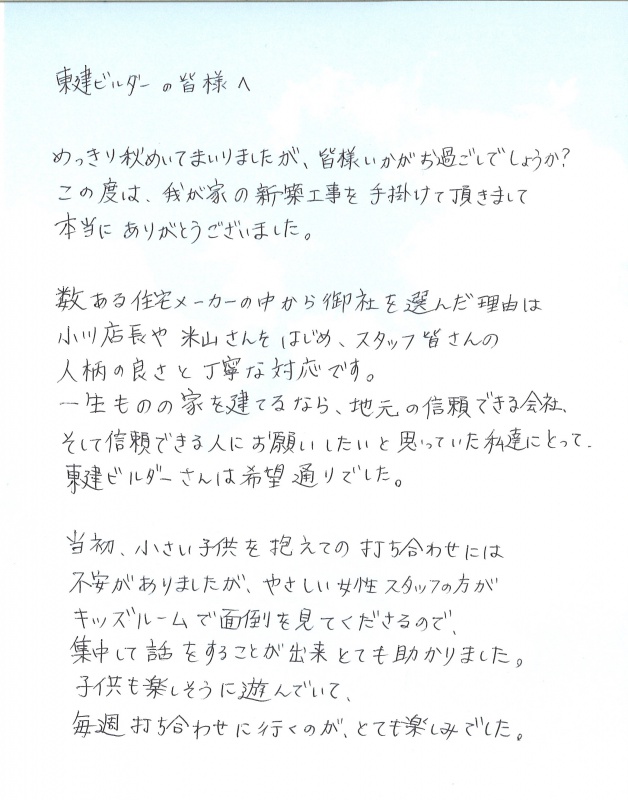 東建ビルダーの皆様へ
めっきり秋めいてまいりましたが、皆様いかがお過ごしでしょうか?
この度は、我が家の新築工事を手掛けて頂きまして
本当にありがとうございました。
数ある住宅メーカーの中から御社を選んだ理由は
小川店長や米山さんをはじめ、スタッフ皆さんの
人柄の良さと丁寧な対応です。
一生ものの家を建てるなら、地元の信頼できる会社、
そして信頼できる人にお願いしたいと思っていた私達にとって、
東建ビルダーさんは希望通りでした。
当初、小さい子供を抱えての打ち合わせには
不安がありましたが、やさしい女性スタッフの方が
キッズルームで面倒を見てくださるので、
集中して話をすることが出来とても助かりました。
子供も楽しそうに遊んでいて、
毎週打ち合わせに行くのが、とても楽しみでした。